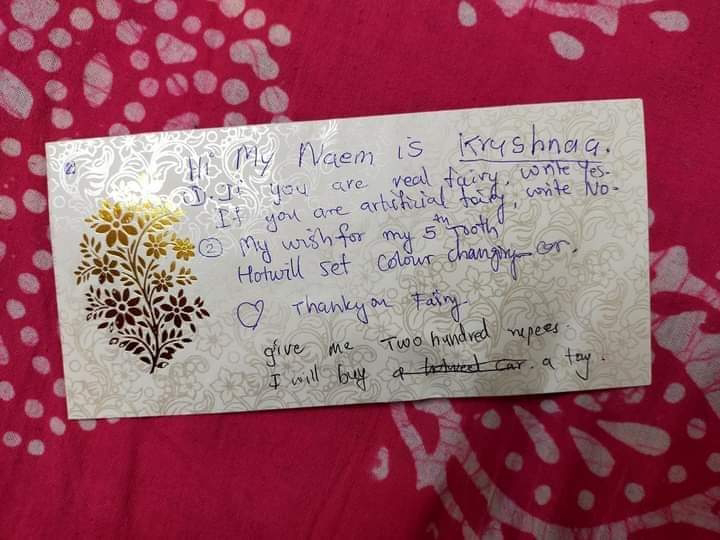 Hi My Naem is Kryshnaa.
①. If you are real fairy, write Yes.
If you are artisticial fairy, write No.
② My wish for my 5th Tooth
Hotwill set colour changiry car.
♡ Thankyou Fairy
give me Two hundred rupees.
I will buy a hotweel car. a toy.